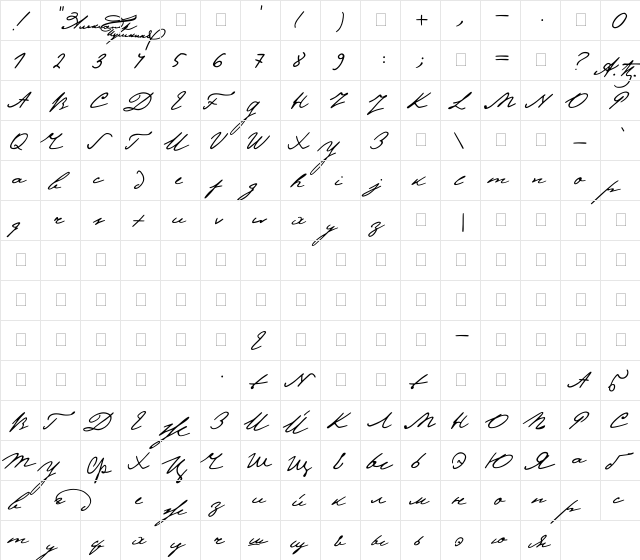 ! " Александр Пушкин ' ( ) + , – . О
1 2 3 4 5 6 7 8 9 : ; = ? А.П.
А В С D Е F g H I J K L M N O P
Q Ч S T U V W X У З \ _ `
a b c d e f g h i j k l m n o p
q r s t u v w x y z |
Е –
· N А Б
В Г Д Е Ж З И Й К Л М Н О П Р С
Т У Ф Х Ц Ч Ш Щ Ъ Ы Ь Э Ю Я а б
в г д е ж з и й к л м н о п р с
т у ф х ц ч ш щ ъ ы ь э ю я